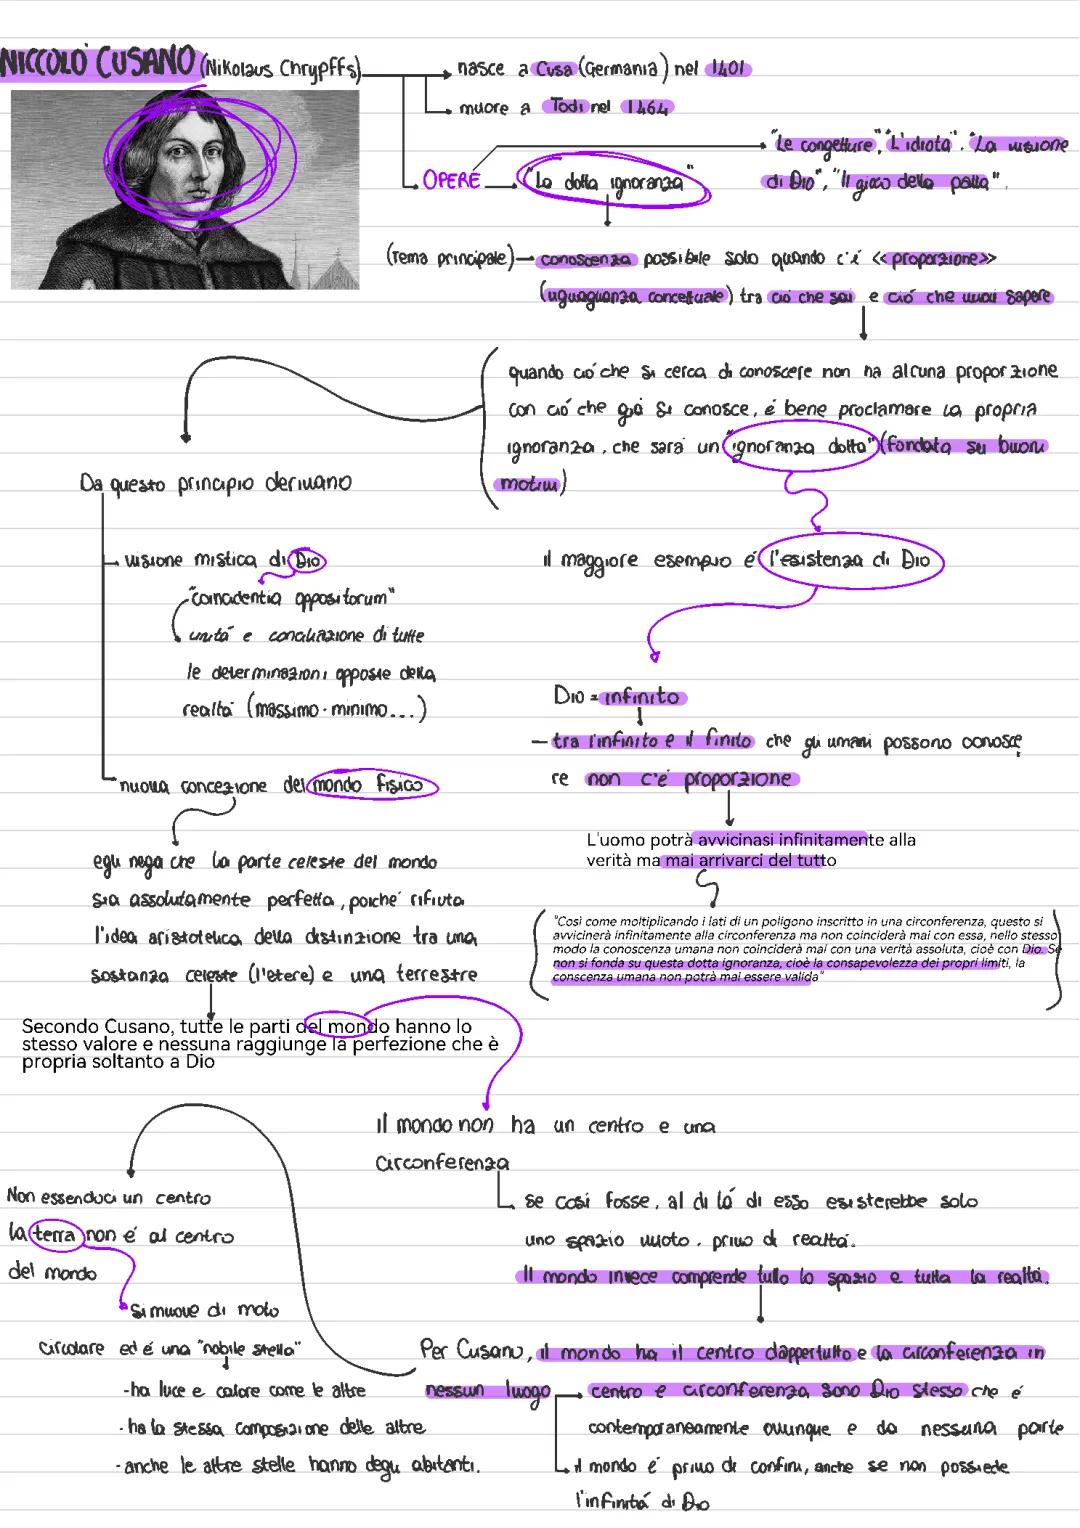 NICCOLÓ CUSANO (Nikolaus Chrypffs)
nasce a Cusa (Germania) nel 1401
muore a Todi nel 1464
OPERE
"La dotta ignoranza"
"Le congetture", "L'idiota". "La visione
di Dio", "Il gioco della palla".
(Tema principale) conoscenza possibile solo quando c'é <<proporzione>>
(uguaglianza concettuale) tra ció che sai e ció che vuoi sapere
quando ció che si cerca di conoscere non ha alcuna proporzione
con ció che giá si conosce, é bene proclamare la propria
ignoranza, che sará un "ignoranza dotta" (fondata su buoni
motivi)
il maggiore esempio é l'esistenza di Dio
Dio = infinito
- tra l'infinito e il finito che gli umani possono conosce
re non c'é proporzione
L'uomo potrà avvicinasi infinitamente alla
verità ma mai arrivarci del tutto
"Così come moltiplicando i lati di un poligono inscritto in una circonferenza, questo si
avvicinerà infinitamente alla circonferenza ma non coinciderà mai con essa, nello stesso
modo la conoscenza umana non coinciderà mai con una verità assoluta, cioè con Dio. Se
non si fonda su questa dotta ignoranza, cioè la consapevolezza dei propri limiti, la
conscenza umana non potrà mai essere valida"
Da questo principio derivano
visione mistica di Dio
"coincidentia oppositorum"
unitá e conciliazione di tutte
le determinazioni opposte della
realtá (massimo-minimo...)
nuova concezione del mondo fisico
egli nega che la parte celeste del mondo
sia assolutamente perfetta, poiché rifiuta
l'idea aristotelica della distinzione tra una
sostanza celeste (l'etere) e una terrestre
Secondo Cusano, tutte le parti del mondo hanno lo
stesso valore e nessuna raggiunge la perfezione che è
propria soltanto a Dio
Il mondo non ha un centro e una
circonferenza
se cosí fosse, al di lá di esso esisterebbe solo
uno spazio vuoto, privo di realtá.
Il mondo invece comprende tutto lo spazio e tutta la realtá.
Per Cusano, il mondo ha il centro dappertutto e la circonferenza in
nessun luogo
centro e circonferenza sono Dio stesso che é
contemporaneamente ovunque e da nessuna parte
il mondo é privo di confini, anche se non possiede
l'infinitá di Dio
Non essendoci un centro
la terra non é al centro
del mondo
Si muove di moto
circolare ed é una "nobile stella"
-ha luce e calore come le altre
-ha la stessa composizione delle altre
-anche le altre stelle hanno degli abitanti.